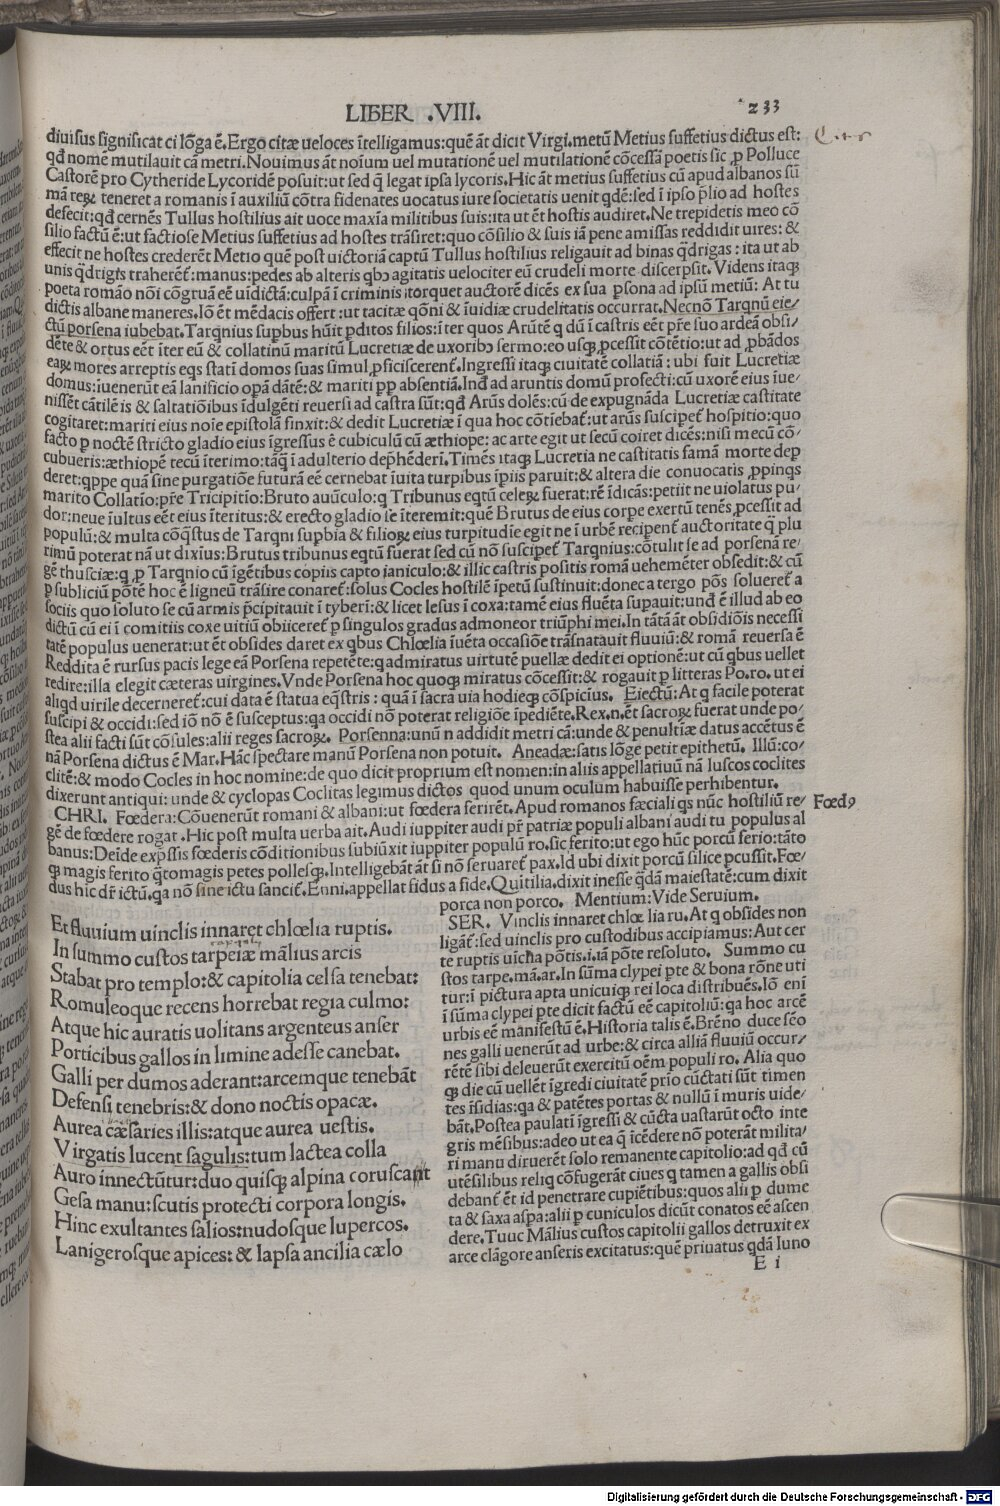 LIBER .VIII.
233
diuisus significat ei lōga ē. Ergo citæ ueloces ītelligamus: quē āt dicit Virgi. metū Metius suffetius dictus est:
qđ nomē mutilauit cā metri. Nouimus āt noīum uel mutationē uel mutilationē cōcessā poetis sic ꝓ Polluce
Castorē pro Cytheride Lycoridē posuit: ut sed q̄ legat ipsa lycoris. Hic āt metius suffetius cū apud albanos sū
mā reꝝ teneret a romanis ī auxiliū cōtra fidenates uocatus iure societatis uenit qdē: sed ī ipso p̄lio ad hostes
defecit: qđ cernēs Tullus hostilius ait uoce maxīa militibus suis: ita ut ēt hostis audiret. Ne trepidetis meo cō
silio factū ē: ut factiose Metius suffetius ad hostes trāsiret: quo cōsilio & suis iā pene amissas reddidit uires: &
effecit ne hostes crederēt Metio quē post uictoriā captū Tullus hostilius religauit ad binas q̄drigas: ita ut ab
unis q̄drigis traherēt̄: manus: pedes ab alteris qbꝫ agitatis uelociter eū crudeli morte discerpsit. Videns itaqꝫ
poeta romāo nōi cōgruā eē uīdictā: culpā ī criminis itorquet auctorē dicēs ex sua ꝑsona ad ipsū metiū: At tu
dictis albane maneres. Iō ēt mēdacis offert: ut tacitæ qōni & īuidiæ crudelitatis occurrat. Necnō Tarqnū eie/
ctū porsena iubebat. Tarqnius supbus hūit ꝑditos filios: īter quos Arūtē q dū ī castris eēt p̄re suo ardeā obsi/
dēte & ortus eēt īter eū & collatinū maritū Lucretiæ de uxoribꝫ sermo: eo usqꝫ ꝓcessit cōtētio: ut ad ꝓbādos
eaꝝ mores arreptis eqs stati domos suas simul ꝓficiscerent̄. Ingressi itaqꝫ ciuitatē collatiā: ubi fuit Lucretiæ
domus: īuenerūt eā lanificio opā dātē: & mariti pp absentiā. Inđ ad aruntis domū profecti: cū uxorē eius īue/
nissēt cātilēis & saltatiōibus īdulgēti reuersi ad castra sūt: qđ Arūs dolēs: cū de expugnāda Lucretiæ castitate
cogitaret: mariti eius noīe epistolā finxit: & dedit Lucretiæ ī qua hoc cōtiebat̄: ut arūs susciperet̄ hospitio: quo
facto ꝑ noctē stricto gladio eius īgressus ē cubiculū cū æthiope: ac arte egit ut secū coiret dicēs: nisi mecū cō/
cubueris: æthiopē tecū īterimo: tāq̄ ī adulterio dep̄hēderī. Timēs itaqꝫ Lucretia ne castitatis famā morte dep
deret: qppe quā sine purgatiōe futurā eē cernebat īuita turpibus īpiis paruit: & altera die conuocatis ꝓpinqs
marito Collatīo: p̄re Tricipitīo: Bruto auūculo: q Tribunus eqtū celeꝝ fuerat: rē īdicās: petiit ne uiolatus pu/
dor: neue īultus eēt eius īteritus: & erecto gladio se īteremit: quē Brutus de eius corpe exertū tenēs ꝓcessit ad
populū: & multa cōq̄stus de Tarqni supbia & filioꝝ eius turpitudīe egit ne ī urbē recipent̄ auctoritate q̄ plu
rimū poterat nā ut dixīus: Brutus tribunus eqtū fuerat sed cū nō susciperet̄ Tarqnius: cōtulit se ad porsenā re/
gē thusciæ: q ꝓ Tarqnio cū īgētibus copiis capto ianiculo: & illic castris positis romā uehemēter obsedit: & cū
ꝑ subliciū pōtē hoc ē ligneū trāsire conaret̄: solus Cocles hostilē īpetū sustinuit: donec a tergo pōs solueret̄ a
sociis quo soluto se cū armis p̄cipitauit ī tyberī: & licet lesus ī coxa: tamē eius fluēta supauit: unđ ē illud ab eo
dictū cū ei ī comitiis coxe uitiū obiiceret̄ ꝑ singulos gradus admoneor triūphi mei. In tātā āt obsidiōis necessi
tatē populus uenerat: ut ēt obsides daret ex qbus Chlœlia īuēta occasiōe trāsnatauit fluuiū: & romā reuersa ē
Reddita ē rursus pacis lege eā Porsena repetēte: q admiratus uirtutē puellæ dedit ei optionē: ut cū qbus uellet
redire: illa elegit cæteras uirgines. Vnde Porsena hoc quoqꝫ miratus cōcessit: & rogauit ꝑ litteras Po. ro. ut ei
aliqd uirile decerneret̄: cui data ē statua eq̄stris: quā ī sacra uia hodieqꝫ cōspicius. Eiectū: At q facile poterat
suscipi & occidi: sed iō nō ē susceptus: qa occidi nō poterat religiōe īpediēte. Rex. n. ēt sacroꝝ fuerat unde po/
stea alii facti sūt cōsules: alii reges sacroꝝ. Porsenna: unū n addidit metri cā: unde & penultīæ datus accētus ē
nā Porsena dictus ē Mar. Hāc spectare manū Porsena non potuit. Aneadæ: satis lōge petit epithetū. Illū: co/
clitē: & modo Cocles in hoc nomine: de quo dicit proprium est nomen: in aliis appellatiuū nā luscos coclites
dixerunt antiqui: unde & cyclopas Coclitas legimus dictos quod unum oculum habuisse perhibentur.
CHRI. Fœdera: Cōuenerūt romani & albani: ut fœdera ferirēt. Apud romanos fæciali qs nūc hostiliū re/
Fœdꝰ
gē de fœdere rogat. Hic post multa uerba ait. Audi iuppiter audi pr̄ patriæ populi albani audi tu populus al
banus: Deīde exp̄ssis fœderis cōditionibus subiūxit iuppiter populū ro. sic ferito: ut ego hūc porcū ferio: tāto
qꝫ magis ferito q̄tomagis petes pollesqꝫ. Intelligebāt āt si nō seruaret̄ pax. Id ubi dixit porcū silice ꝑcussit. Fœ/
dus hic dr̄ ictū. qa nō sine ictu sancit̄. Enni. appellat fidus a fide. Quitilia. dixit inesse q̄dā maiestatē: cum dixit
porca non porco. Mentium: Vide Seruium.
Et fluuium uinclis innaret chlœlia ruptis.
In summo custos tarpeiæ mālius arcis
Stabat pro templo: & capitolia celsa tenebat:
Romuleoque recens horrebat regia culmo:
Atque hic auratis uolitans argenteus anser
Porticibus gallos in limine adesse canebat.
Galli per dumos aderant: arcemque tenebāt
Defensi tenebris: & dono noctis opacæ.
Aurea cæsaries illis: atque aurea uestis.
Virgatis lucent sagulis: tum lactea colla
Auro innectūtur: duo quisqꝫ alpina coruscant
Gesa manu: scutis protecti corpora longis.
Hinc exultantes salios: nudosque lupercos.
Lanigerosque apices: & lapsa ancilia cælo
SER. Vinclis innaret chlœ lia ru. At q obsides non
ligāt̄: sed uinclis pro custodibus accipiamus: Aut cer
te ruptis uicha pōtis. i. iā pōte resoluto. Summo cu
stos tarpe. mā. ar. In sūma clypei pte & bona rōne uti
tur: ī pictura apta unicuiqꝫ rei loca distribuēs. Iō enī
ī sūma clypei pte dicit factū eē capitoliū: qa hoc arcē
urbis eē manifestū ē. Historia talis ē. Brēno duce sēo
nes galli uenerūt ad urbē: & circa alliā fluuiū occur/
rētē sibi deleuerūt exercitū oēm populi ro. Alia quo
qꝫ die cū uellēt īgredi ciuitatē prio cūctati sūt timen
tes īsidias: qa & patētes portas & nullū ī muris uide/
bāt. Postea paulati īgressi & cūcta uastarūt octo inte
gris mēsibus: adeo ut ea q̄ īcēdere nō poterāt milita/
ri manu diruerēt solo remanente capitolio: ad qđ cū
utēsilibus reliq cōfugerāt ciues q tamen a gallis obsi
debant̄ ēt id penetrare cupiētibus: quos alii ꝑ dume
ta & saxa aspa: alii ꝑ cuniculos dicūt conatos eē ascen
dere. Tuuc Mālius custos capitolii gallos detruxit ex
arce clāgore anseris excitatus: quē priuatus qdā Iuno
E i
Digitalisierung gefördert durch die Deutsche Forschungsgemeinschaft - DFG